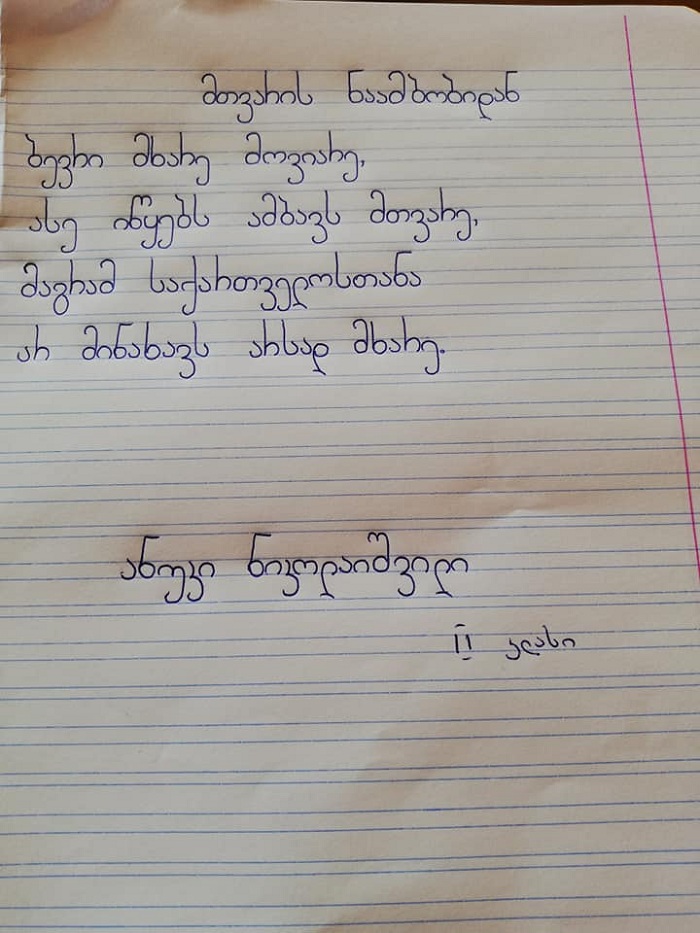 მთვარის ნაამბობიდან
ბევრი მხარე მოვიარე,
ასე იწყებს ამბავს მთვარე,
მაგრამ საქართველოსთანა
არ მინახავს არსად მხარე.
ანუკი ნიკოლაიშვილი
II კლასი